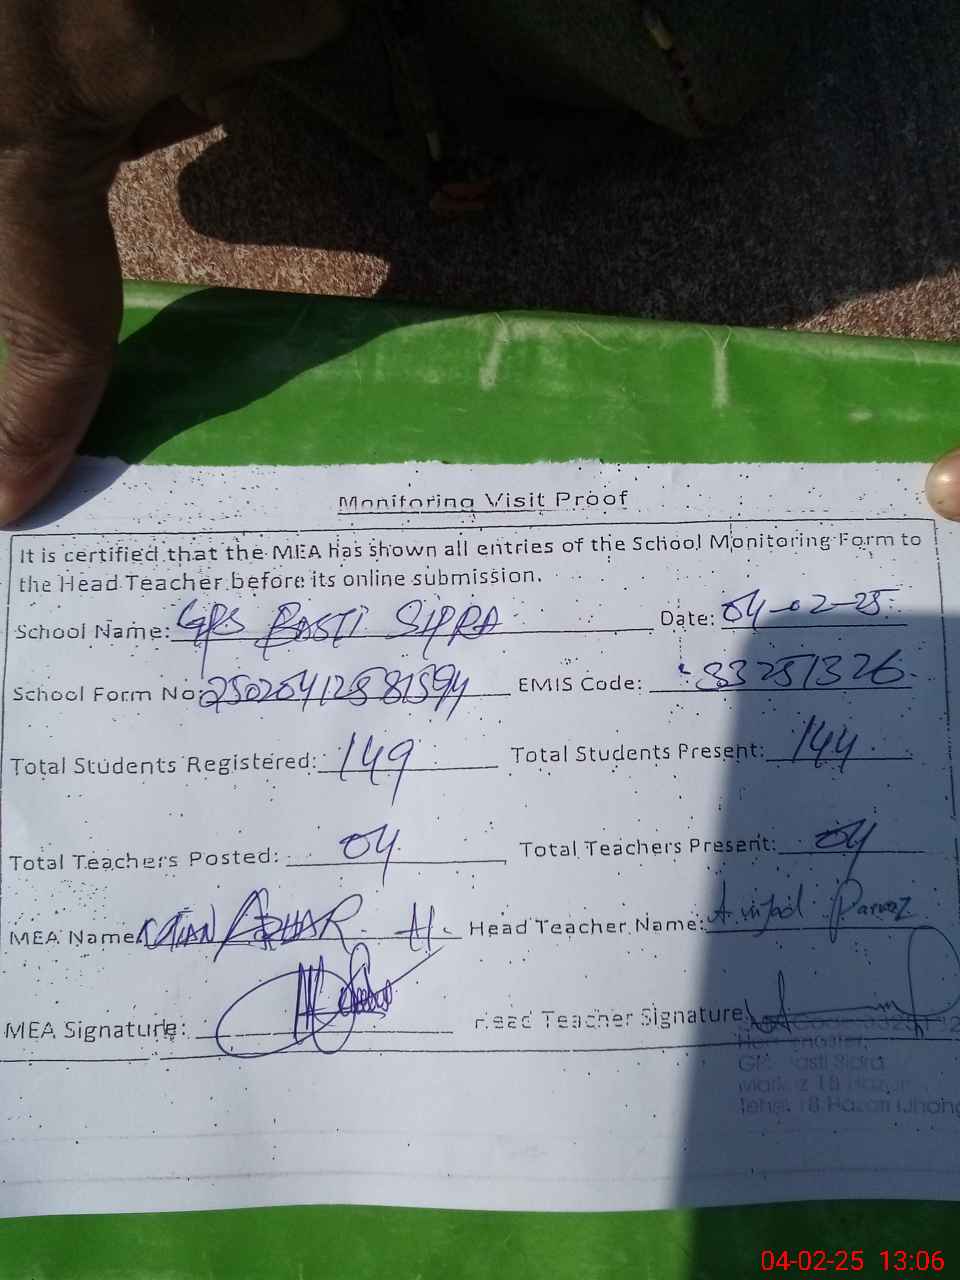 Monitoring Visit Proof
It is certified that the MEA has shown all entries of the School Monitoring Form to
the Head Teacher before its online submission.
School Name: GPS BASTI SIPRA Date: 04-02-25
School Form No: EMIS Code: 33251326
Total Students Registered: 149 Total Students Present: 144
Total Teachers Posted: 04 Total Teachers Present: 04
MEA Name: MIAN AZHAR H. Head Teacher Name: Amjad Parvaz
MEA Signature: Head Teacher Signature
Basti Sipra
04-02-25 13:06